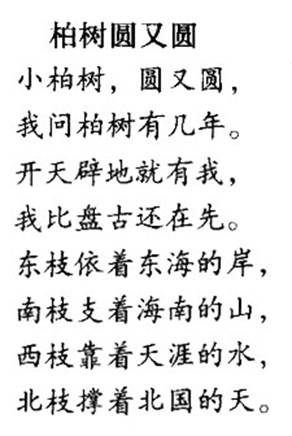 柏树圆又圆
小柏树，圆又圆，
我问柏树有几年。
开天辟地就有我，
我比盘古还在先。
东枝依着东海的岸，
南枝支着海南的山，
西枝靠着天涯的水，
北枝撑着北国的天。